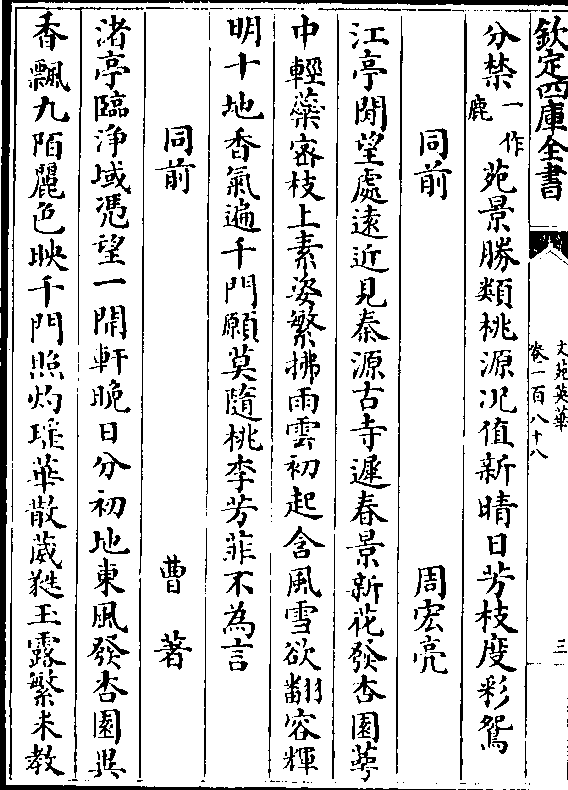 欽定四庫全書
文苑英華
卷一百八十八
三
分禁一作鹿苑景勝類桃源况值新晴日芳枝度彩鴛
同前　周宏亮
江亭閒望處遠近見秦源古寺遲春景新花發杏園萼
中輕蘂密枝上素姿繁拂雨雲初起含風雪欲翻容輝
明十地香氣遍千門願莫隨桃李芳菲不為言
同前　曹著
渚亭臨淨域憑望一開軒晚日分初地東風發杏園異
香飄九陌麗色映千門照灼瑤華散葳蕤玉露繁未教